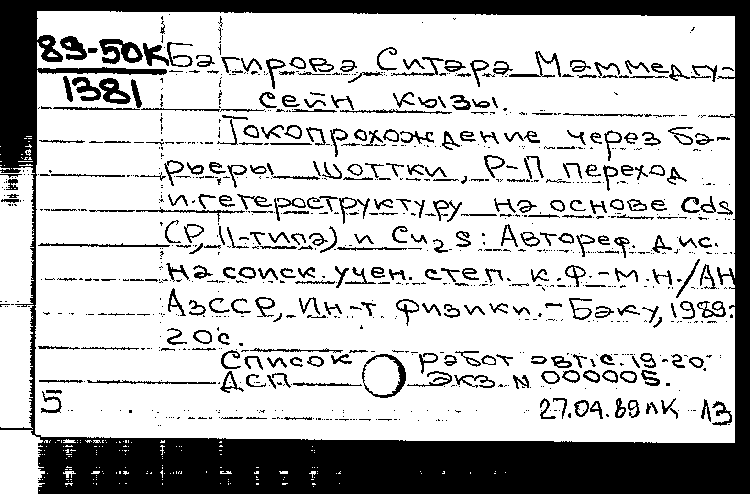 89-50К
1381
Багирова, Ситара Маммедгу-
сейн кызы.
Токопрохождение через ба-
рьеры Шоттки, Р-П переход
и гетероструктуру на основе Cds
(Р, II-типа) и Cu2S: Автореф. дис.
на соиск. учен. степ. к.ф.-м.н./АН
АзССР, Ин-т физики.-Баку, 1989.
20с.
Список работ авт: с. 19-20.
ДСП Экз. N 000005.
5
27.04.89 ЛК 13